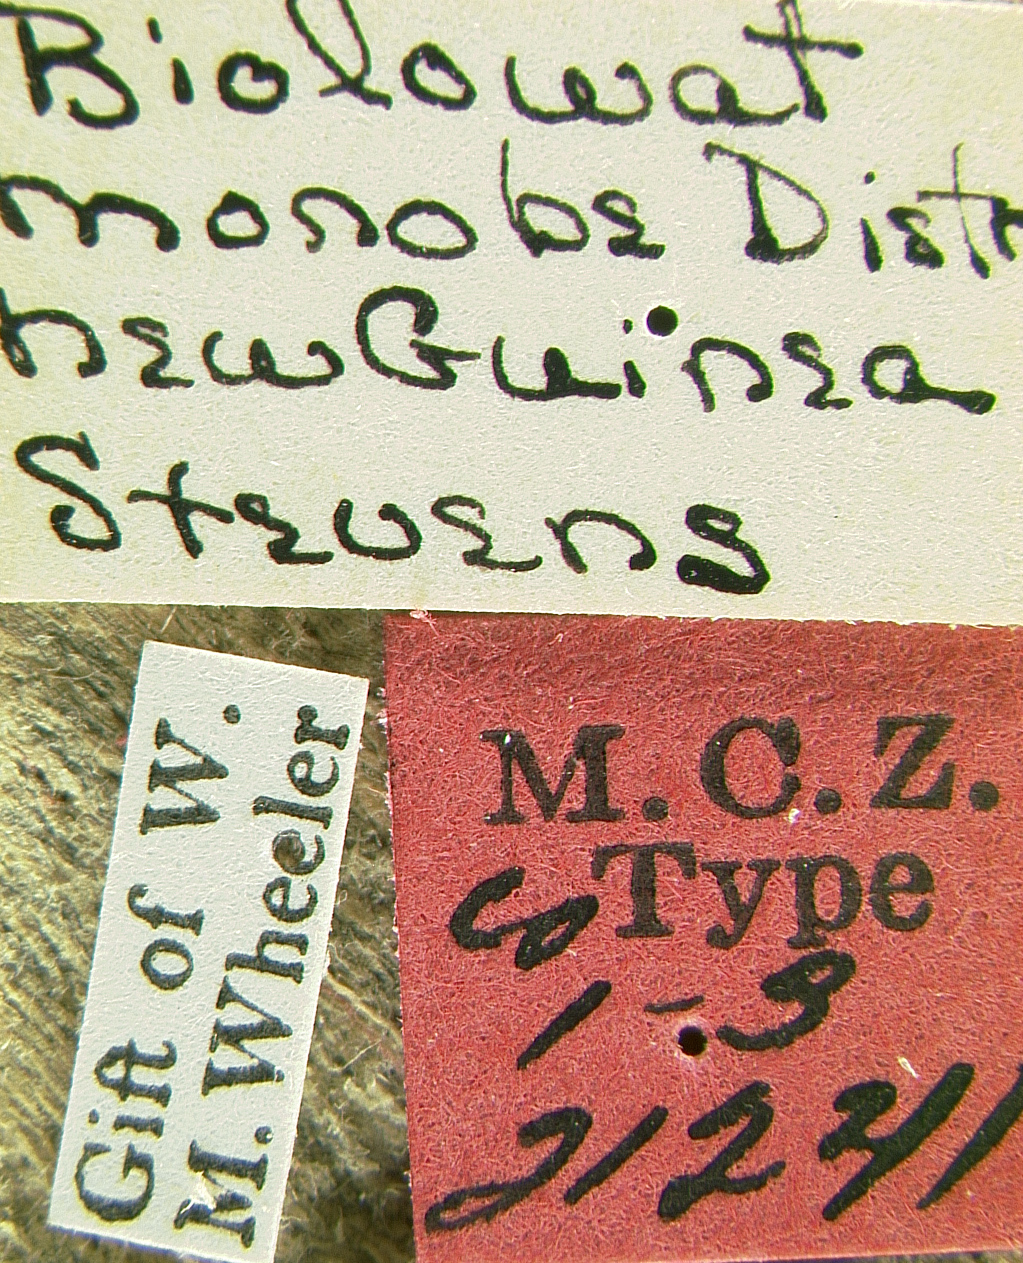 Biolowat
morobe Distr
new Guinea
Stevens
Gift of W.
M. Wheeler
M.C.Z.
Co Type
1-3
21241